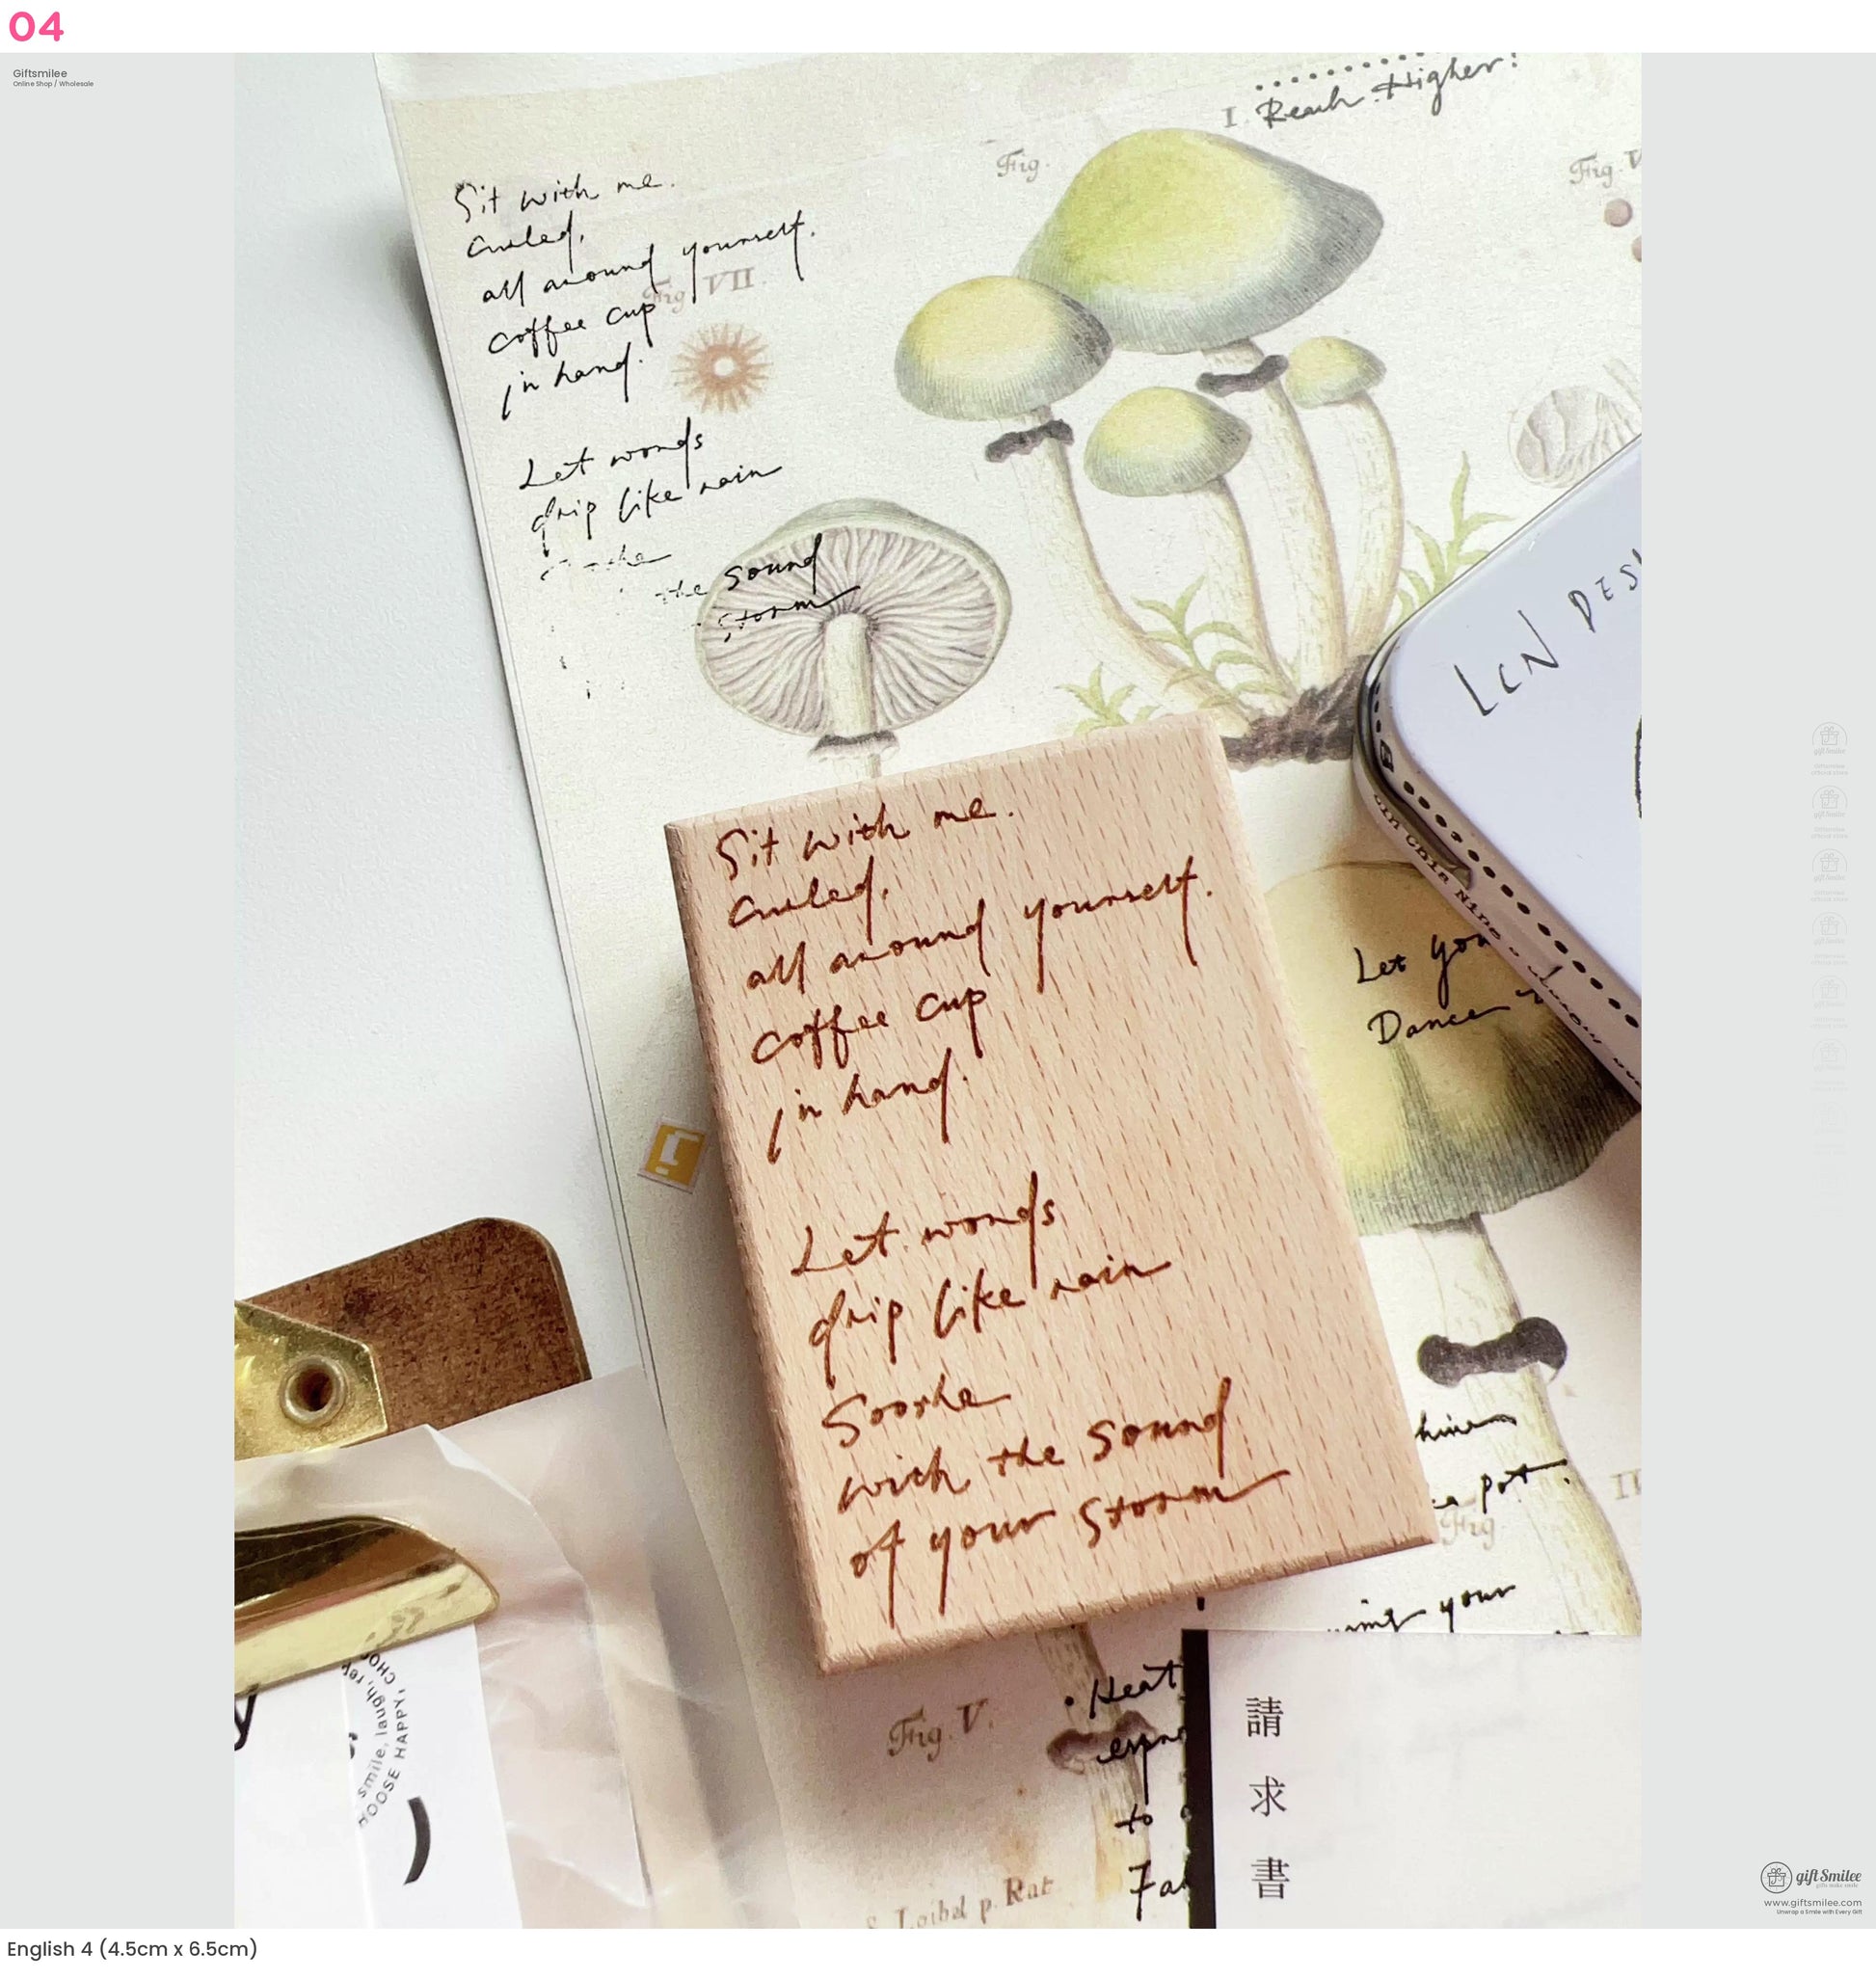 04
Giftsmilee
Online Shop / Wholesale
I. Reach Higher!
Fig.
Fig. V
Sit with me.
Curled,
all around yourself.
coffee cup
in hand.
Fig. VII
Let words
drip like rain
the sound
storm
LCN DES
Sit with me.
Curled,
all around yourself.
coffee cup
in hand.
Let words
drip like rain
Soothe
with the sound
of your storm
Let you
Dance
pot.
Fig
your
Fig. V.
Heat
to
請
求
書
smile, laugh,
HOOSE HAPPY,
p. Rat
gift Smilee
www.giftsmilee.com
Unwrap a Smile with Every Gift
English 4 (4.5cm x 6.5cm)